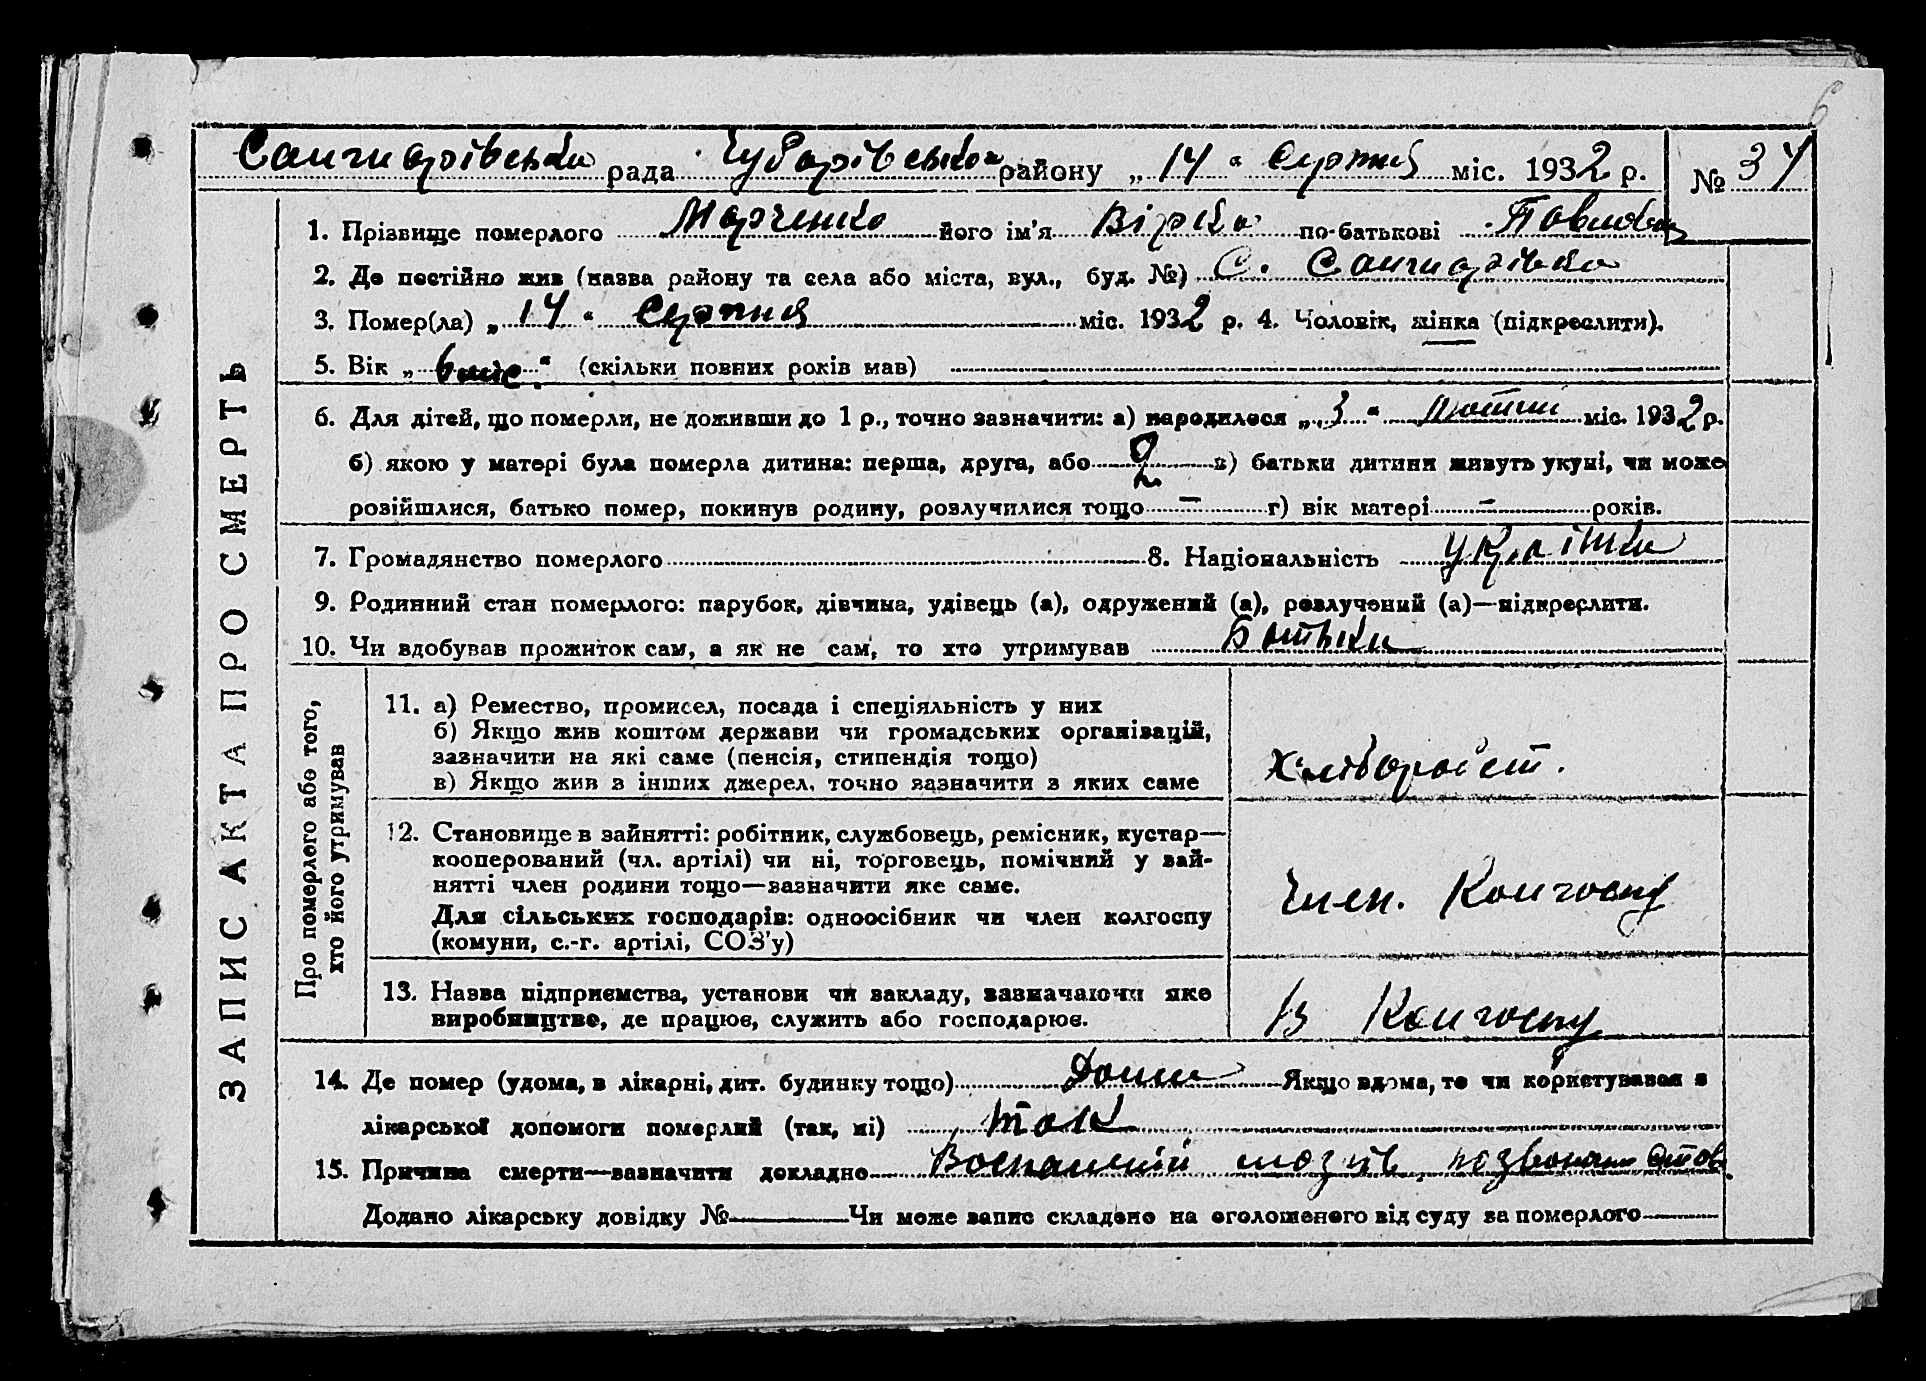 6
рада Чубарівського району „14“ Серпня міс. 1932 р. № 34
ЗАПИС АКТА ПРО СМЕРТЬ
1. Прізвище померлого Марченко його ім'я Вірка по-батькові Павловна
2. Де постійно жив (назва району та села або міста, вул., буд. №) С.
3. Помер(ла) „14“ Серпня міс. 1932 р. 4. Чоловік, жінка (підкреслити).
5. Вік „6 міс.“ (скільки повних років мав)
6. Для дітей, що померли, не доживши до 1 р., точно зазначити: а) народилося „3“ Лютий міс. 1932 р.
б) якою у матері була померла дитина: перша, друга, або 2 в) батьки дитини живуть укупі, чи може
розійшлися, батько помер, покинув родину, розлучилися тощо — г) вік матері — років.
7. Громадянство померлого 8. Національність Українка
9. Родинний стан померлого: парубок, дівчина, удівець (а), одружений (а), розлучений (а)—підкреслити.
10. Чи вдобував прожиток сам, а як не сам, то хто утримував Батьки
Про померлого або того,
хто його утримував
11. а) Ремество, промисел, посада і спеціяльність у них
б) Якщо жив коштом держави чи громадських організацій,
зазначити на які саме (пенсія, стипендія тощо)
в) Якщо жив з інших джерел, точно зазначити з яких саме
12. Становище в зайнятті: робітник, службовець, ремісник, кустар—
кооперований (чл. артілі) чи ні, торговець, помічний у зай-
нятті член родини тощо—зазначити яке саме.
Для сільських господарів: одноосібник чи член колгоспу
(комуни, с.-г. артілі, СОЗ'у)
Член. Колгоспу
13. Назва підприємства, установи чи закладу, зазначаючи яке
виробництво, де працює, служить або господарює.
В Колгоспу
14. Де помер (удома, в лікарні, дит. будинку тощо) Дома Якщо вдома, то чи користувався з
лікарської допомоги померлий (так, ні) так
15. Причина смерти—зазначити докладно
Додано лікарську довідку № Чи може запис складено на оголошеного від суду за померлого